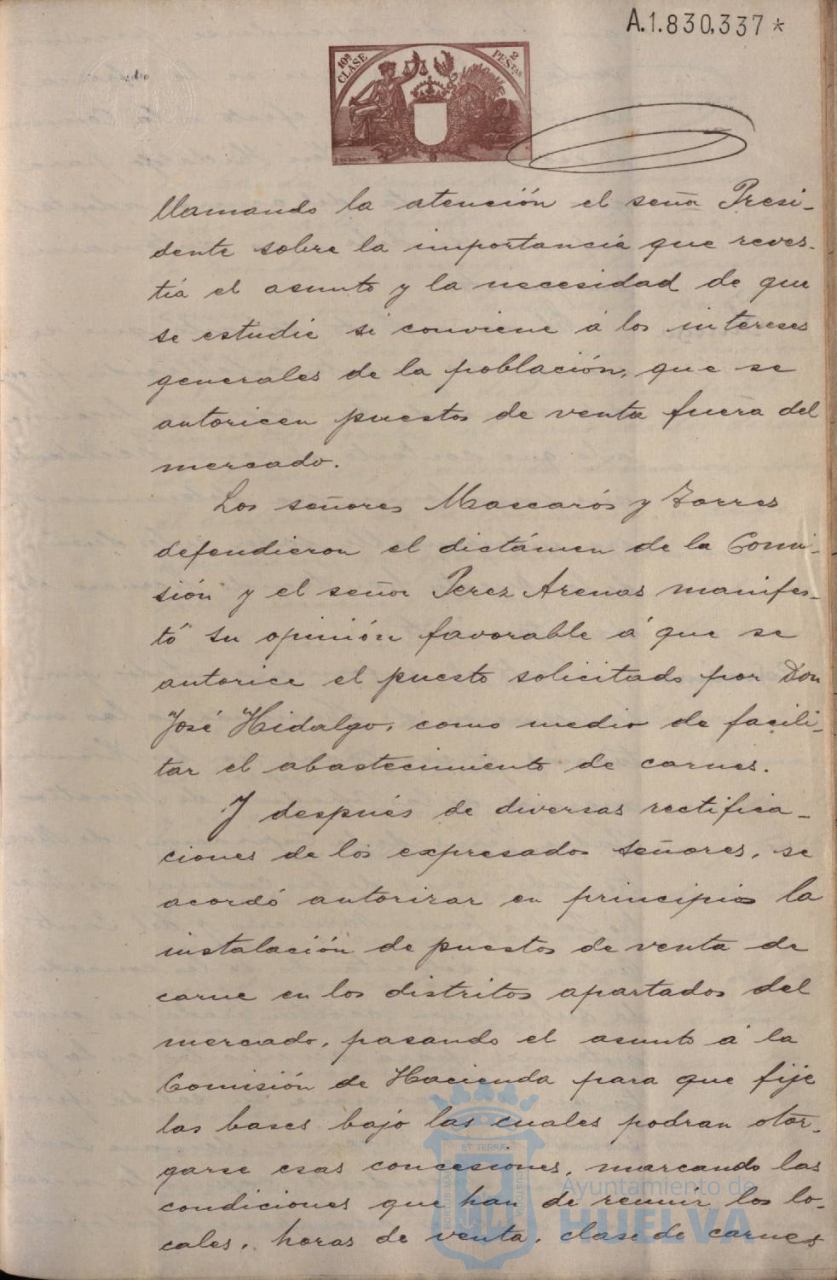 A.1.830.337*
10ª CLASE
2 PESTAS
llamando la atención el señor Presi-
dente sobre la importancia que reves-
tía el asunto y la necesidad de que
se estudie si conviene á los intereses
generales de la población, que se
autoricen puestos de venta fuera del
mercado.
Los señores Mascarós y Torres
defendieron el dictámen de la Comi-
sión y el señor Perez Arenas manifes-
tó su opinión favorable á que se
autorice el puesto solicitado por Don
José Hidalgo, como medio de facili-
tar el abastecimiento de carnes.
Y después de diversas rectifica-
ciones de los expresados señores, se
acordó autorizar en principio la
instalación de puestos de venta de
carne en los distritos apartados del
mercado, pasando el asunto á la
Comisión de Hacienda para que fije
las bases bajo las cuales podran otor-
garse esas concesiones, marcando las
condiciones que han de reunir los lo-
cales, horas de venta, clase de carnes
Ayuntamiento de
HUELVA